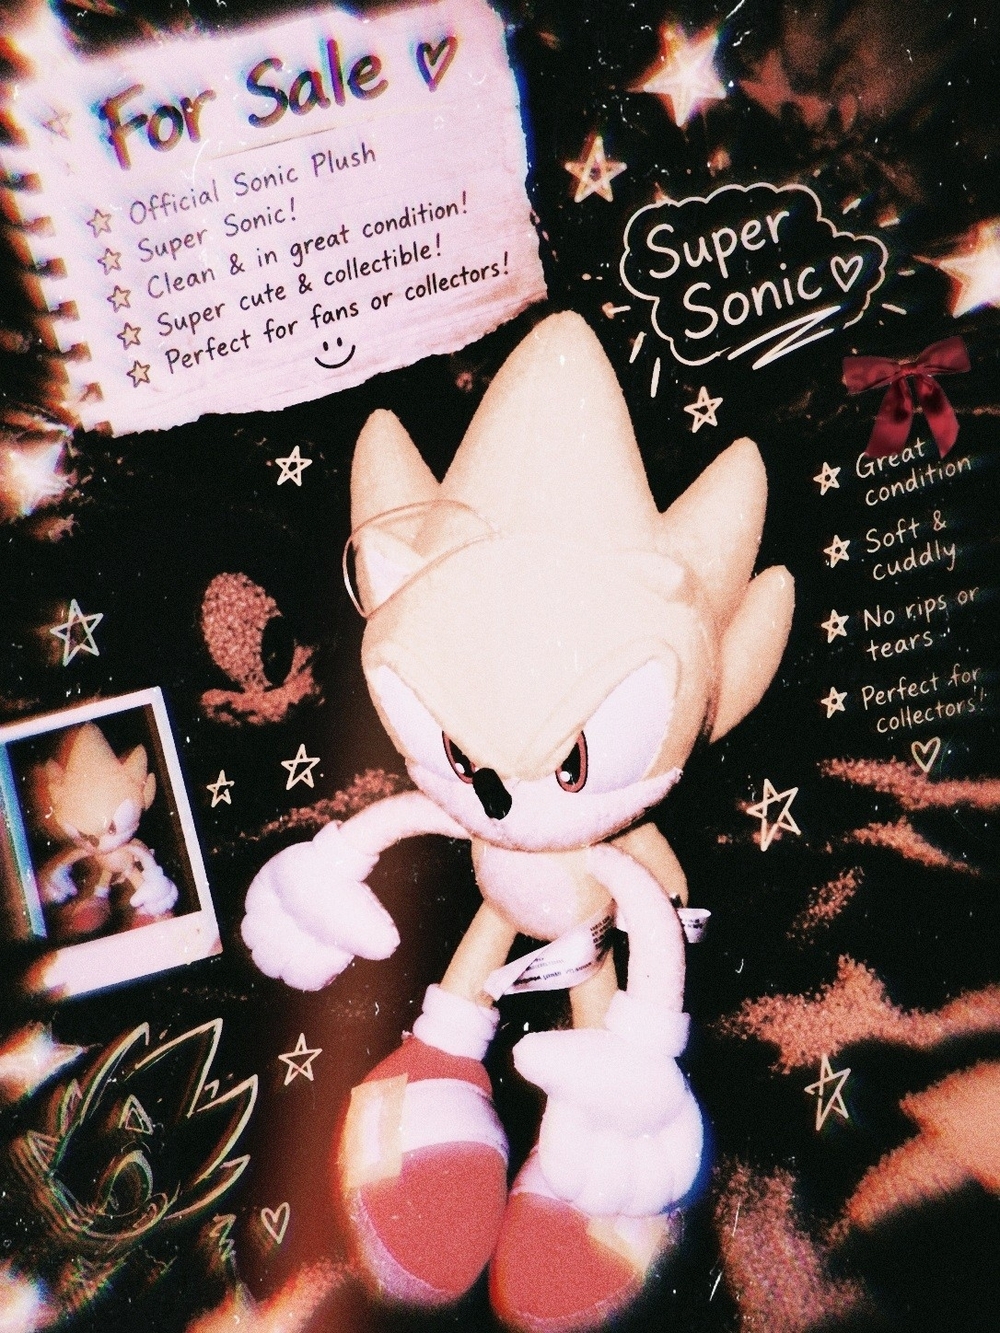 For Sale ♡
☆ Official Sonic Plush
☆ Super Sonic!
☆ Clean & in great condition!
☆ Super cute & collectible!
☆ Perfect for fans or collectors!
Super
Sonic ♡
☆ Great
condition
☆ Soft &
cuddly
☆ No rips or
tears
☆ Perfect for
collectors!